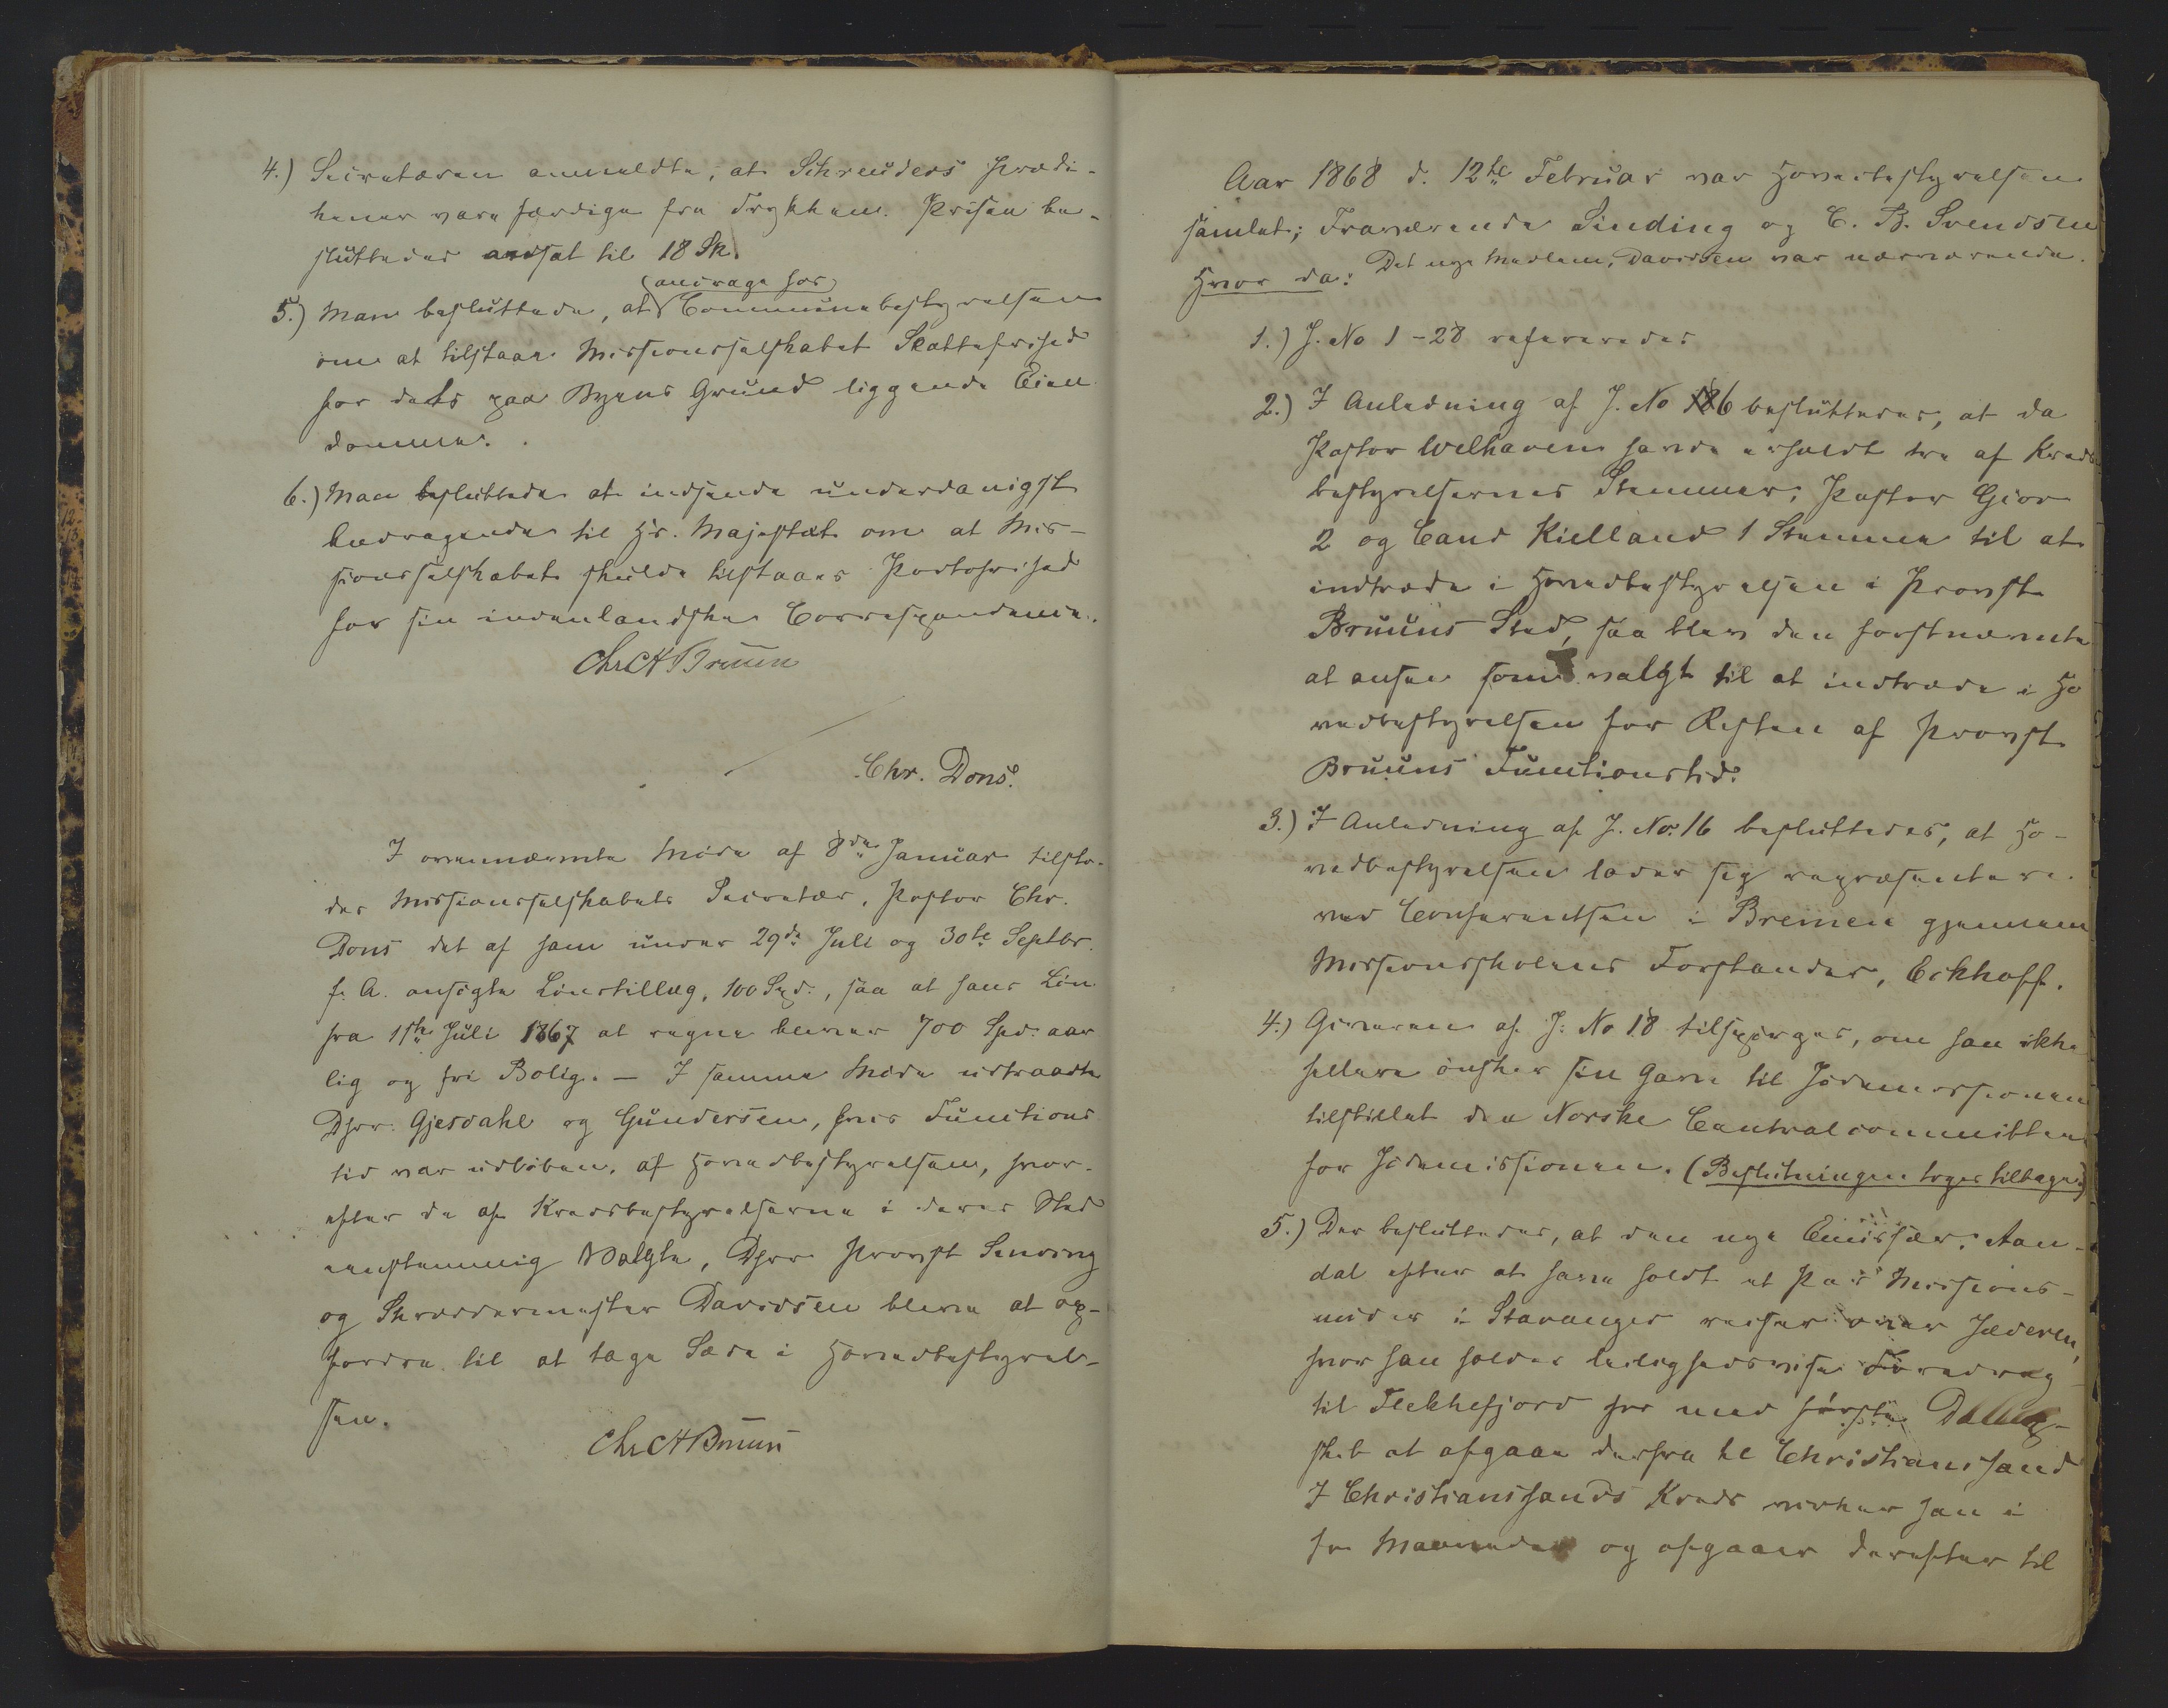 4.) Secretæren anmeldte, at Schreuders Prædi-
kener vare færdige fra Trykken. Prisen be-
sluttedes ansat til 18 Sk.
5.) Man besluttede, at (andrage for) Communebestyrelsen
om at tilstaae Missionsselskabet Skattefrihed
for dets paa Byens Grund liggende Eien
domme.
6.) Man besluttede at indsende underdanigst
Andragende til Hs. Majestæt om at Mis-
sionsselskabet skulde tilstaaes Portofrihed
for sin indenlandske Correspondence.
Chr A Bruun
Chr. Dons.
I ovennævnte Møde af 8de Januar tilsto-
des Missionsselskabets Secretær, Pastor Chr.
Dons det af ham under 29de Juli og 30te Septbr.
f. A. ansøgte Lønstillæg, 100 Spd., saa at hans Løn
fra 1ste Juli 1867 at regne bliver 700 Spd. aar
lig og fri Bolig. — I samme Møde udtraadte
Dhrr. Gjesdahl og Gundersen, hvis Functions
tid var udløben, af Hovedbestyrelsen, hvor-
efter de af Kredsbestyrelserne i deres Sted
eenstemmig Valgte, Dhrr. Provst Sinding
og Skræddermester Davidsen bleve at op-
fordre til at tage Sæde i Hovedbestyrel-
sen.
Chr A Bruun
Aar 1868 d. 12te Februar var Hovedbestyrelsen
samlet; Fraværende Sinding og C. B. Svendsen
Det nye Medlem, Davidsen var nærværende.
Hvor da:
1.) J. No 1-28 refereredes
2.) I Anledning af J. No 6 besluttedes, at da
Pastor Welhaven havde erholdt tre af Kreds
bestyrelsernes Stemmer, Pastor Gjør
2 og Cand Kielland 1 Stemme til at
indtræde i Hovedbestyrelsen i Provst
Bruuns Sted, saa blev den førstnævnte
at ansee som valgt til at indtræde i Ho
vedbestyrelsen for Resten af Provst
Bruuns Functionstid.
3.) I Anledning af J. No. 16 besluttedes, at Ho-
vedbestyrelsen lader sig repræsentere
ved Conferentsen i Bremen gjennem
Missionsskolens Forstander, Eckhoff.
4.) Giveren af J. No 18 tilspørges, om han ikke
hellere ønsker sin Gave til Jødemissionen
tilstillet den Norske Centralcommittee
for Jødemissionen. (Beslutningen toges tilbage)
5.) Der besluttedes, at den nye Emissær, Aan-
dal efter at have holdt et Par Missions-
møder i Stavanger reiser over Jæderen,
hvor han holder leilighedsvise Foredrag
til Flekkefjord for med første Damp-
skib at afgaae derfra til Christianssand
I Christianssands Kreds virker han i
og afgaaer derefter til